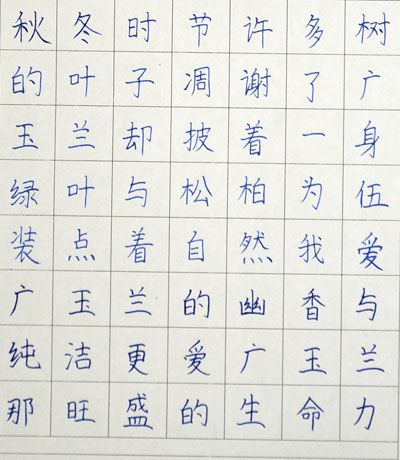 秋冬时节许多树
的叶子凋谢了广
玉兰却披着一身
绿叶与松柏为伍
装点着自然我爱
广玉兰的幽香与
纯洁更爱广玉兰
那旺盛的生命力